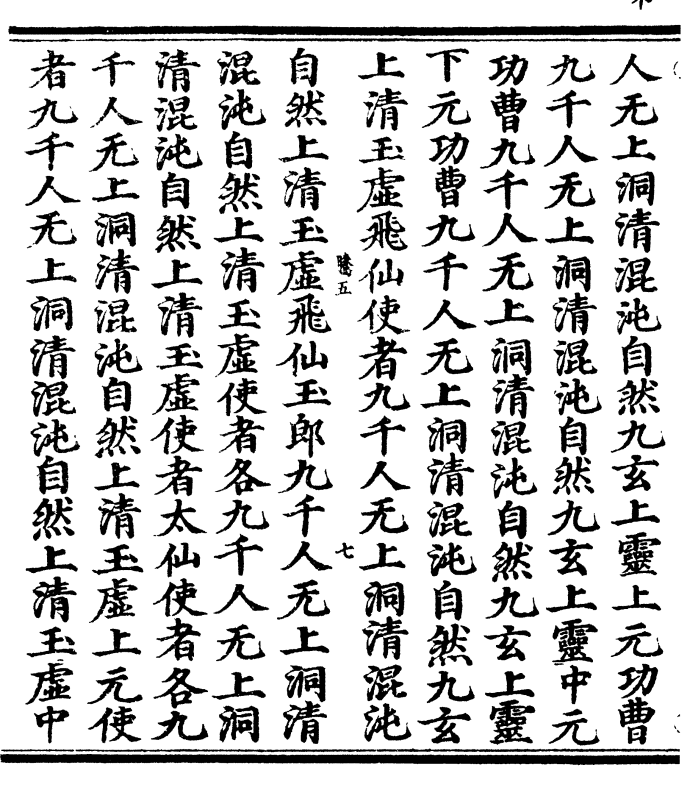 人无上洞清混沌自然九玄上靈上元功曹
九千人无上洞清混沌自然九玄上靈中元
功曹九千人无上洞清混沌自然九玄上靈
下元功曹九千人无上洞清混沌自然九玄
上清玉虛飛仙使者九千人无上洞清混沌
五 七
自然上清玉虛飛仙玉郎九千人无上洞清
混沌自然上清玉虛使者各九千人无上洞
清混沌自然上清玉虛使者太仙使者各九
千人无上洞清混沌自然上清玉虛上元使
者九千人无上洞清混沌自然上清玉虛中